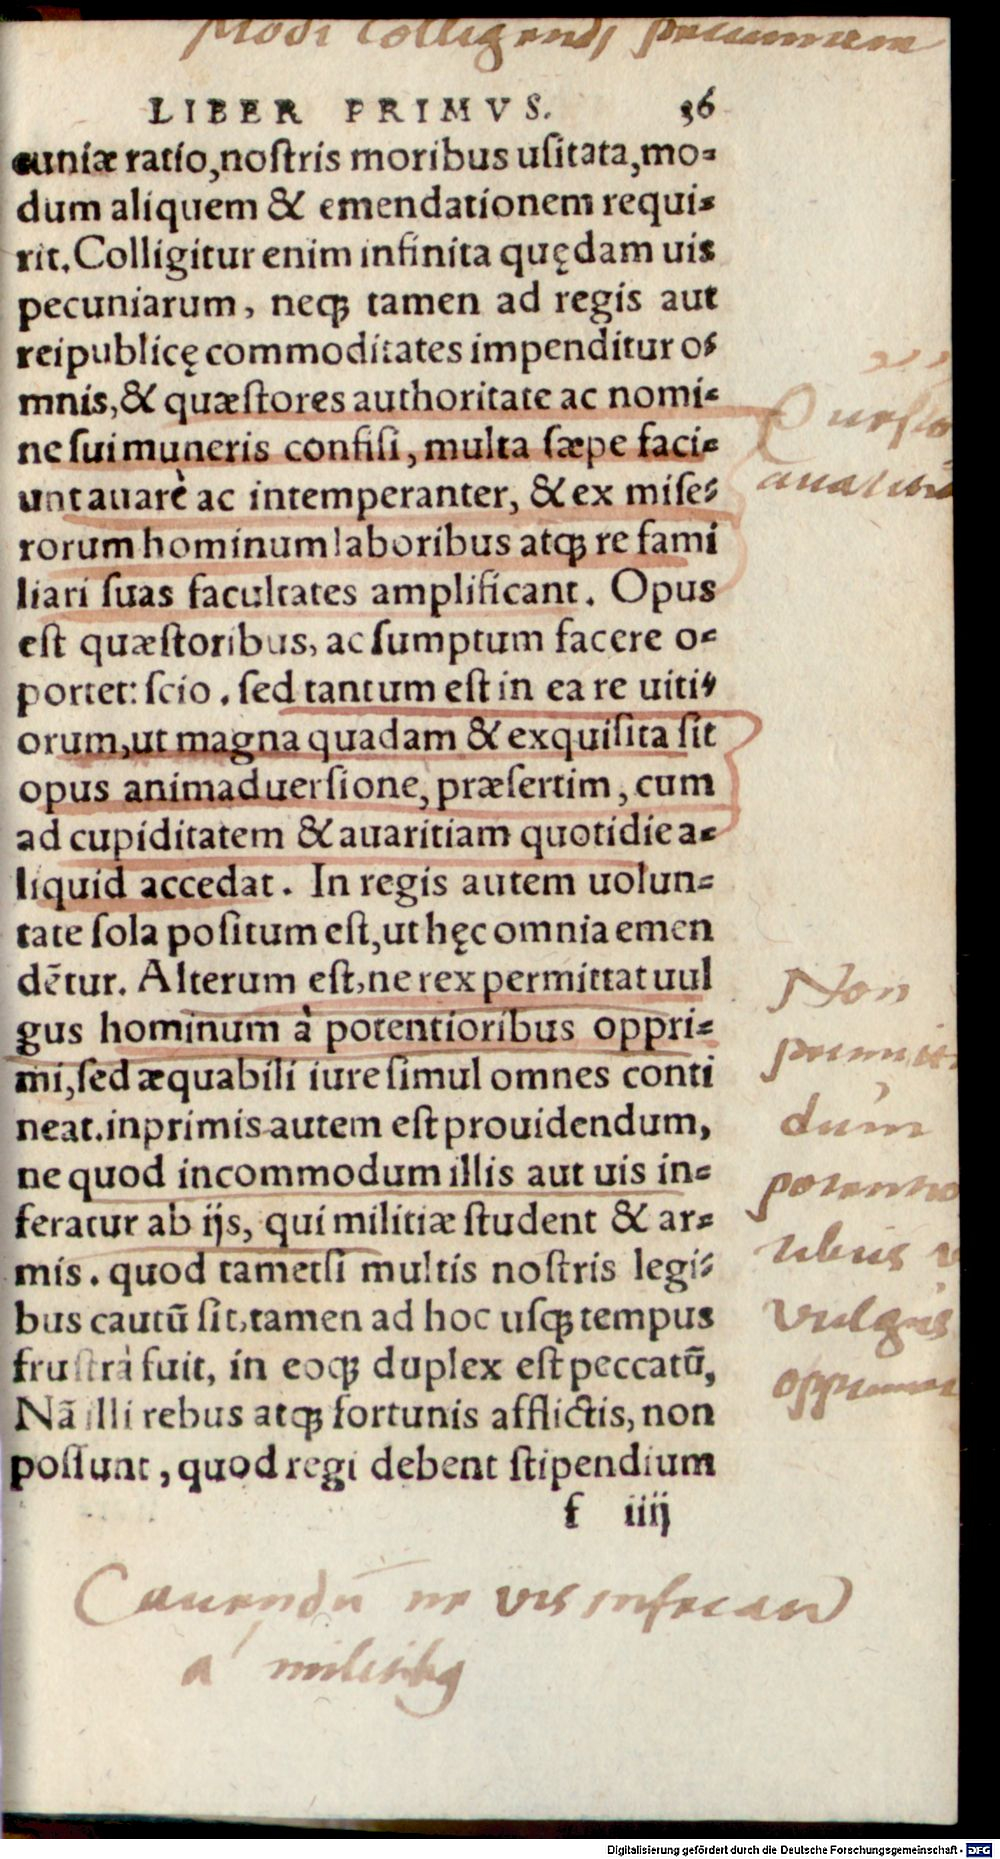 Modi Colligendj pecuniam
LIBER PRIMVS. 36
cuniæ ratio, nostris moribus usitata, mo-
dum aliquem & emendationem requi-
rit. Colligitur enim infinita quędam uis
pecuniarum, neqꝫ tamen ad regis aut
reipublicę commoditates impenditur o-
mnis, & quæstores authoritate ac nomi-
ne sui muneris confisi, multa sæpe faci-
unt auarè ac intemperanter, & ex mise-
rorum hominum laboribus atqꝫ re fami
liari suas facultates amplificant. Opus
est quæstoribus, ac sumptum facere o-
portet: scio. sed tantum est in ea re uiti-
orum, ut magna quadam & exquisita sit
opus animaduersione, præsertim, cum
ad cupiditatem & auaritiam quotidie a-
liquid accedat. In regis autem uolun-
tate sola positum est, ut hęc omnia emen
dẽtur. Alterum est, ne rex permittat uul
gus hominum à potentioribus oppri-
mi, sed æquabili iure simul omnes conti
neat. inprimis autem est prouidendum,
ne quod incommodum illis aut uis in-
feratur ab ijs, qui militiæ student & ar-
mis. quod tametsi multis nostris legi-
bus cautũ sit, tamen ad hoc usqꝫ tempus
frustrà fuit, in eoqꝫ duplex est peccatũ,
Nã illi rebus atqꝫ fortunis afflictis, non
possunt, quod regi debent stipendium
f iiij
Non
dum
vulgus
Cauendũ ne vis inferatur
a militibꝫ
Digitalisierung gefördert durch die Deutsche Forschungsgemeinschaft - DFG